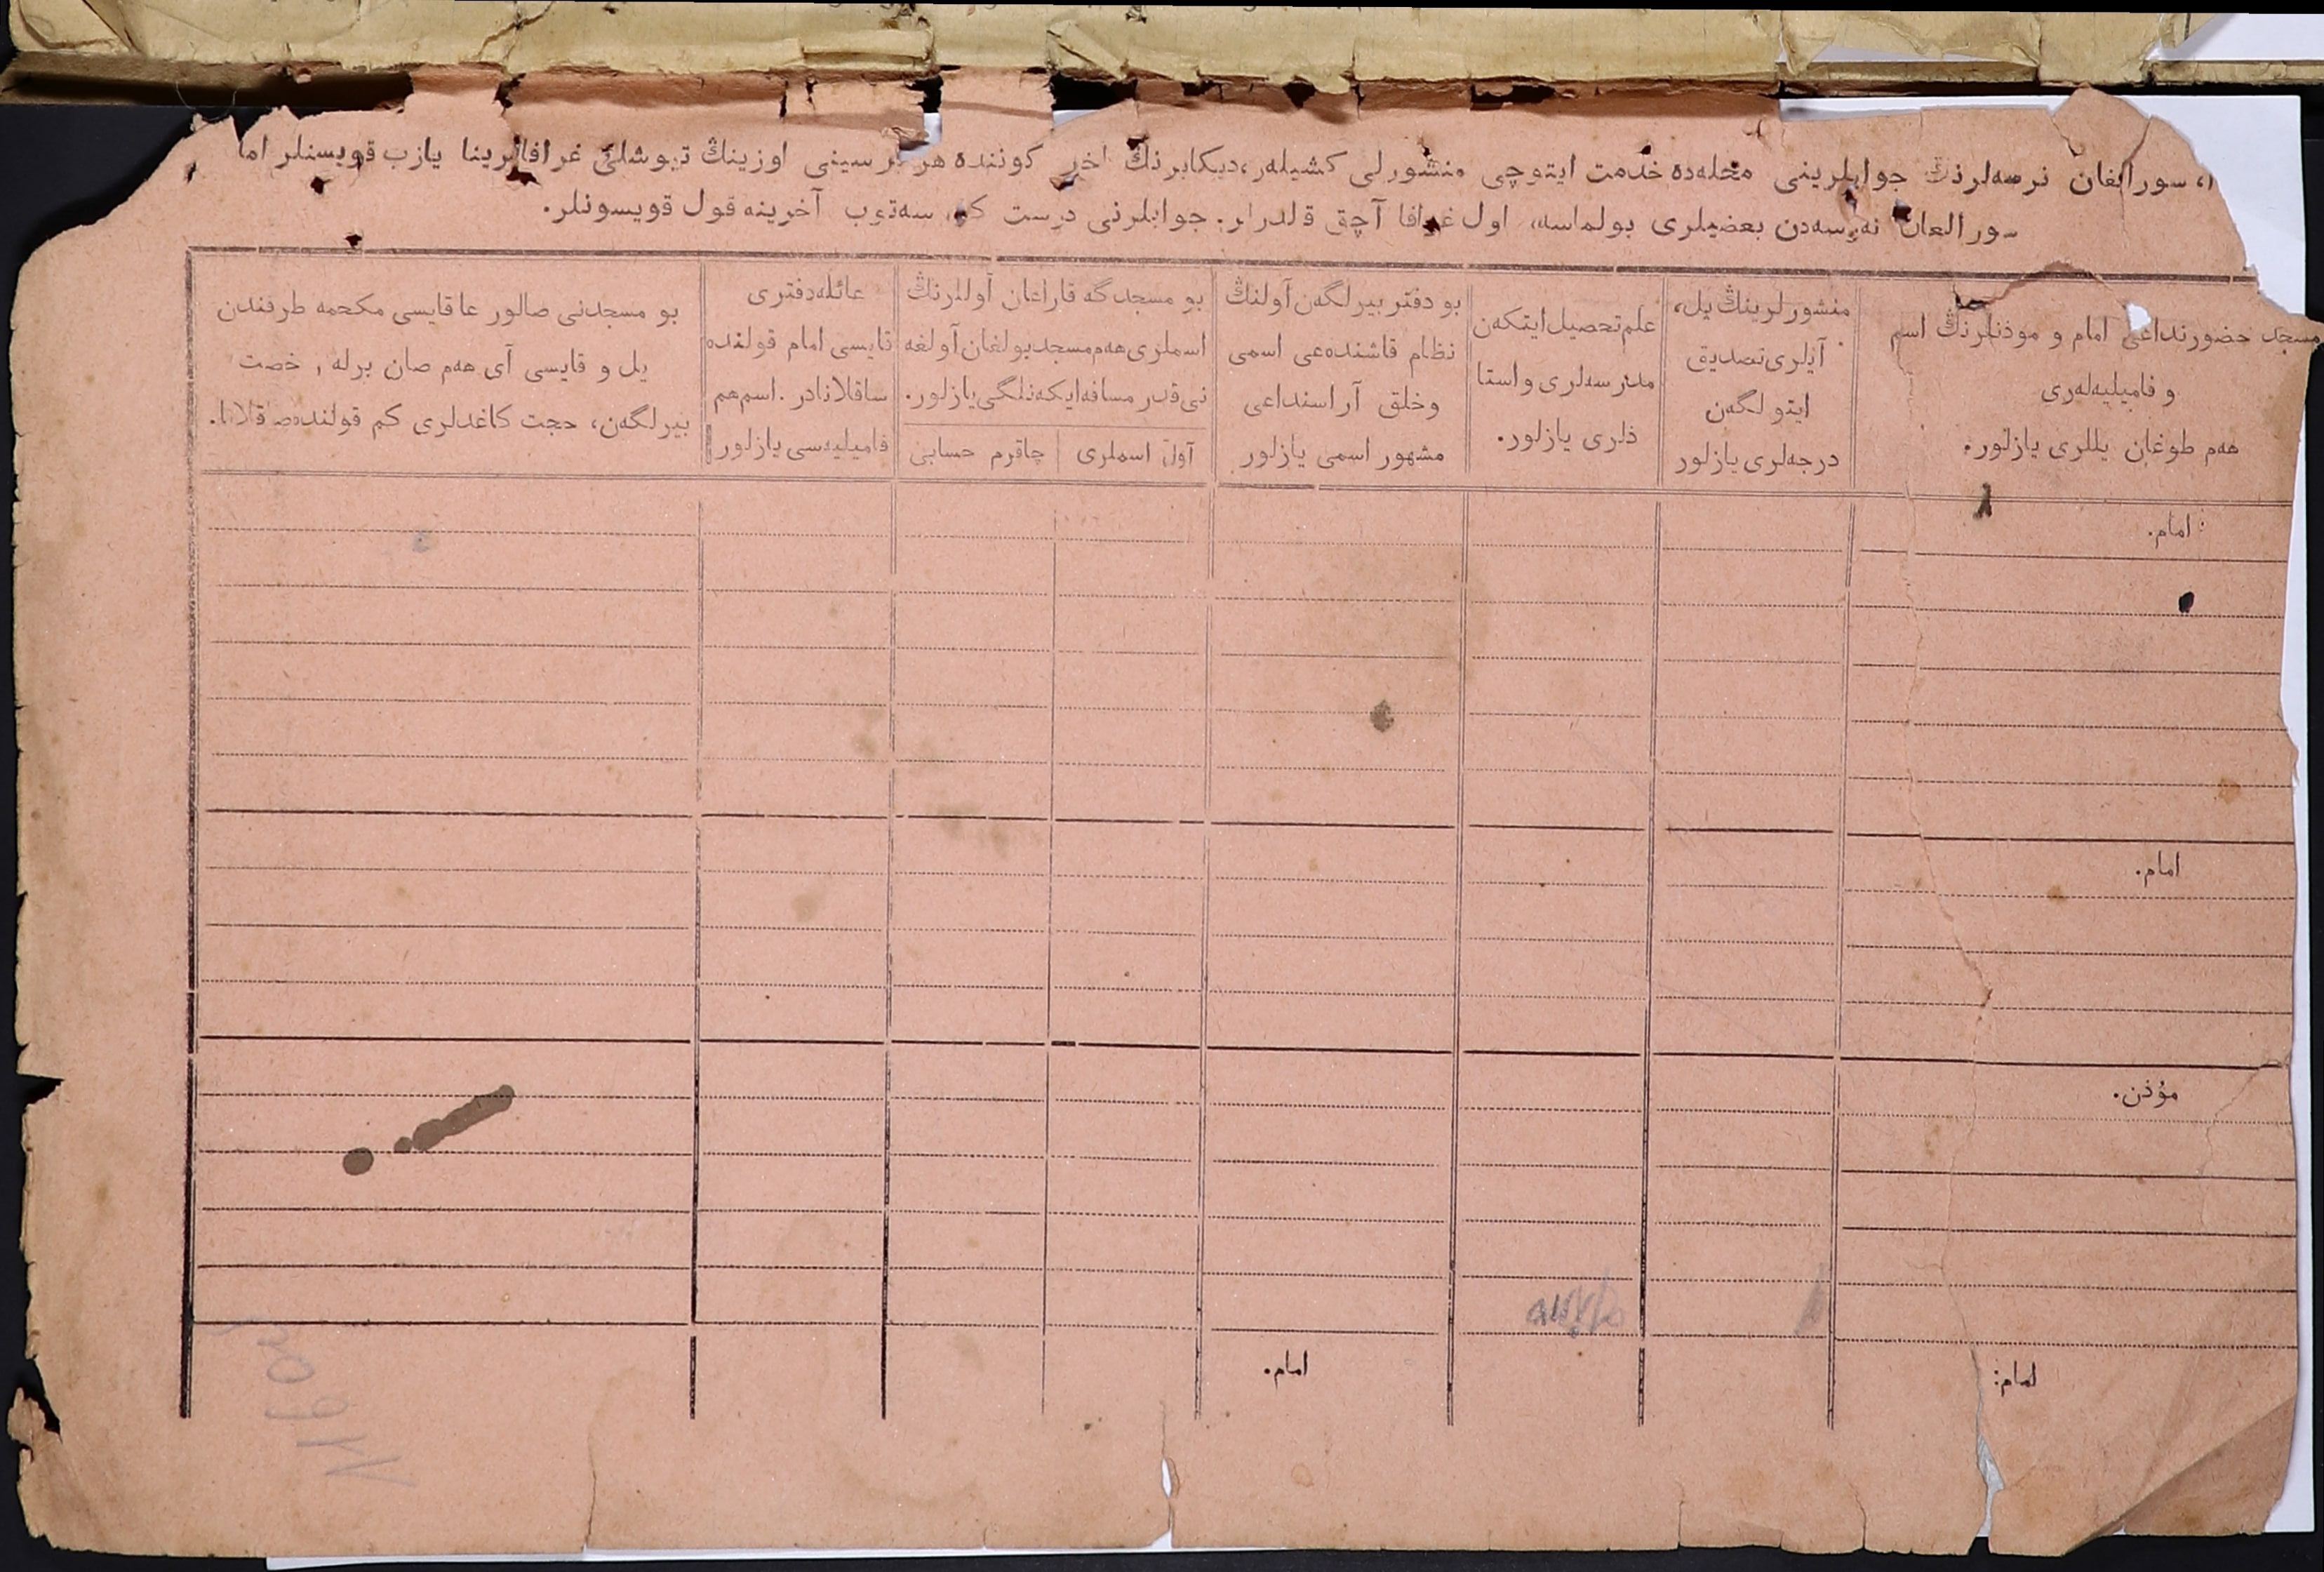 سورالغان نرسه‌لرنڭ جوابلرینی محله‌ده خدمت ایتوچی منشورلی کشیله‌ر، دیکابرنڭ اخر کوننده هر بر سینی اوزینڭ تیوشلی غرافالرینا یازب قویسنلر اما
سورالغان نه‌رسه‌دن بعضیلری بولماسه، اول غرافا آچق قلدرلر. جوابلرنی درست سه‌توب آخرینه قول قویسونلر.
مسجد حضورنداغی امام و موذنلرنڭ اسم
و فامیلیه‌له‌ری
هه‌م طوغان یللری یازلور.
منشورلرینڭ یل،
آیلری تصدیق
ایتولگه‌ن
درجه‌لری یازلور
علم تحصیل ایتکه‌ن
مدرسه‌لری و استا
ذلری یازلور.
بو دفتر بیرلگه‌ن آولنڭ
نظام قاشنده‌غی اسمی
وخلق آراسنداغی
مشهور اسمی یازلور
بو مسجدگه قاراغان آوللرنڭ
اسملری هه‌م مسجد بولغان آولغه
نی قدر مسافه ایکه‌نلگی یازلور.
آول اسملری
چاقرم حسابی
عائله دفتری
قایسی امام قولنده
ساقلانادر. اسم هم
فامیلیه‌سی یازلور
بو مسجدنی صالور غا قایسی محکمه طرفندن
یل و قایسی آی هه‌م صان برله رخصت
بیرلگه‌ن، حجت کاغدلری کم قولنده صاقلانا.
امام.
امام.
مؤذن.
امام:
امام.